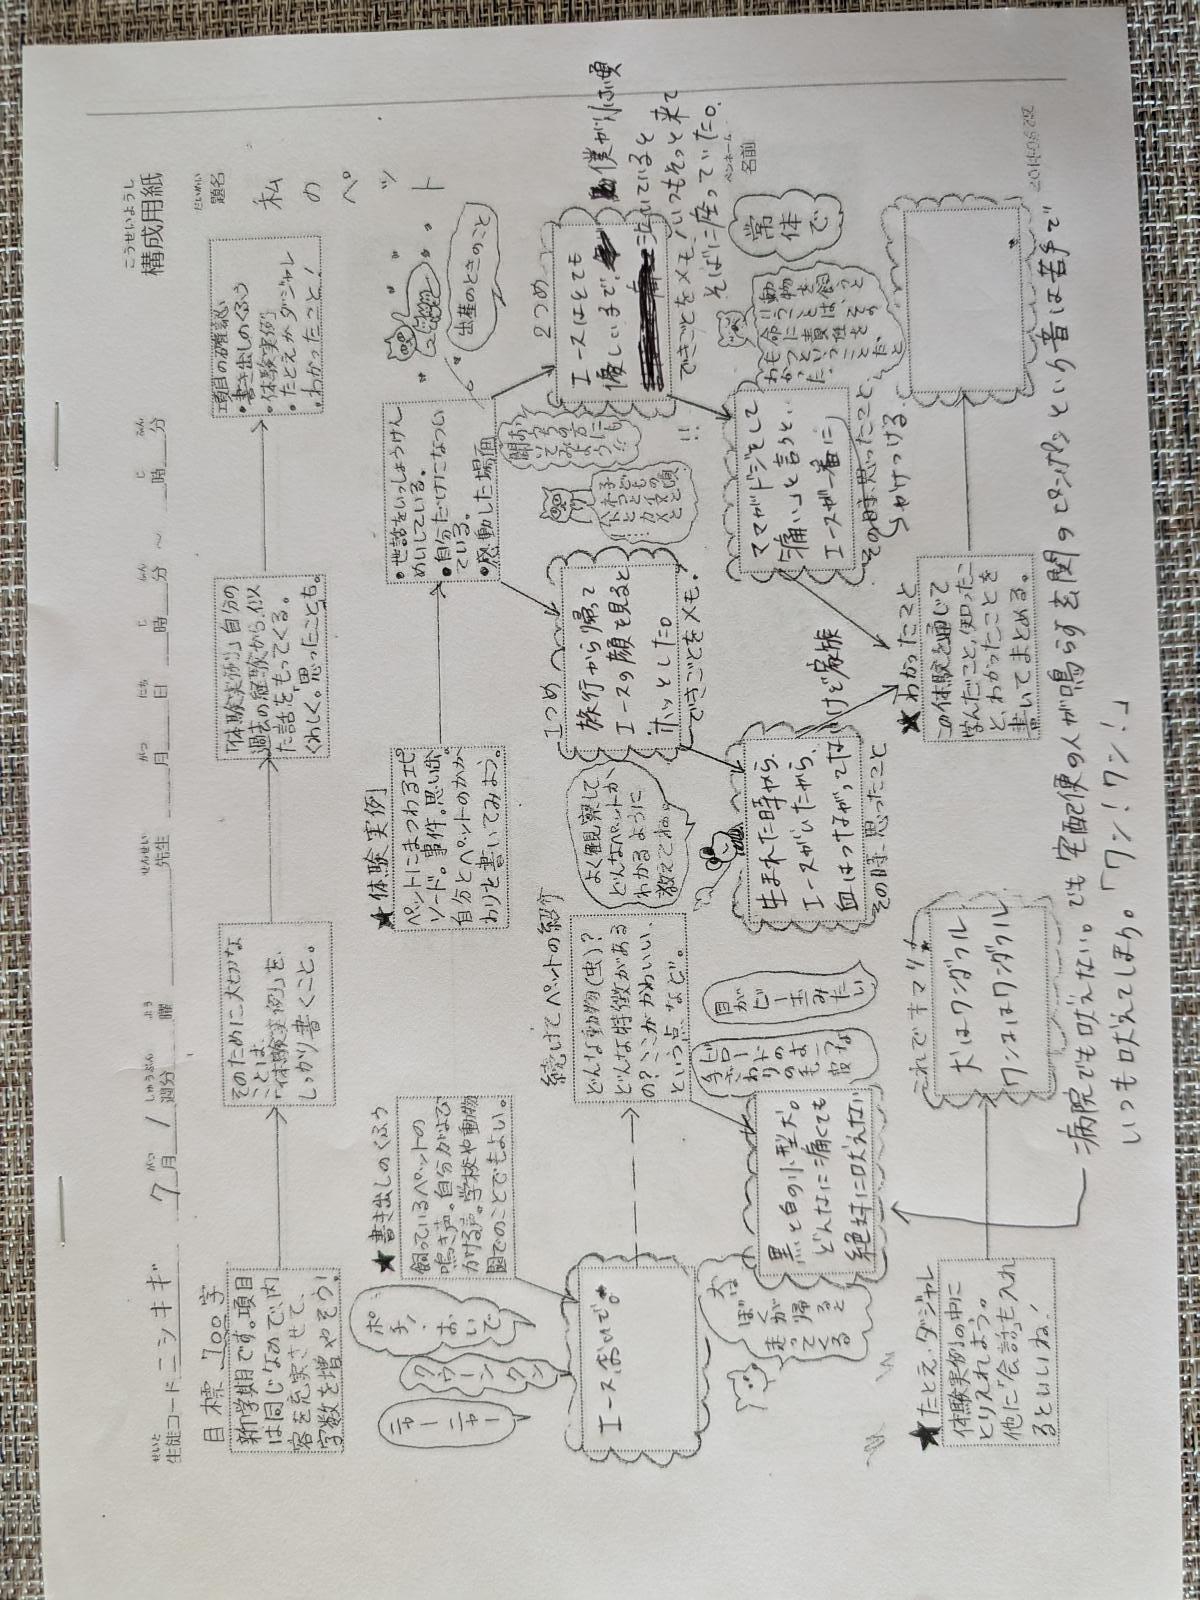 こうせいようし
構成用紙
せいと
生徒コード ニシキギ 7月1週分 曜 先生 月 日 時 分 ～ 時 分
だいめい
題名
私のペット
目標 700字
新学期です。項目
は同じなので、内
容を充実させて、
字数を増やそう!
そのために大切な
ことは、
「体験実例」を、
しっかり書くこと。
「体験実例」自分の
過去の経験から、似
た話をもってくる。
くわしく。思ったことも。
項目の確認
・書き出しのくふう
・体験実例
・たとえかダジャレ
・わかったこと!
★書き出しのくふう
飼っているペットの
鳴き声。自分がよび
かける声。学校や動物
園でのことでもよい。
ポチ!おいで
クウーンクン
ニャーニャー
エース、おいで。
ぼくが帰ると
走ってくる
続けてペットの紹介
どんな動物(虫)?
どんな特徴がある
の?ここがかわいい、
という点、など。
よく観察して
どんなペットか、
わかるように
教えてね。
目がビー玉みたい
黒と白の小型犬。
どんなに痛くても
絶対に吠えない
病院でも吠えない。でも宅配便の人が鳴らす玄関のピンポンという音は苦手で
いつも吠えてしまう。「ワン!ワン!」
★体験実例
ペットにまつわるエピ
ソード。事件。思い出。
自分とペットのかか
わりを書いてみよう。
・世話をいっしょうけん
めいしている。
・自分だけになつい
ている。
・感動した場面
出産のときのこと
1つめ
旅行から帰って
エースの顔を見ると
ホッとした。
できごとをメモ。
生まれた時から、
エースがいたから、
血はつながってないけど家族
その時、思ったこと
2つめ
エースはとても
優しいまで、僕が小さい頃
泣いているといつもそっと来て
そばに座っていた。
できごとをメモ。
おうちの方にも
聞いてみよう!!
ママがドジをして
「痛い」と言うと、
エースが一番に
かけつける。
その時、思ったこと
動物を飼うことは、
命に責任をもつということだと
わかった。
常体で
ペンネーム
名前
★たとえ・ダジャレ
体験実例の中に
とり入れよう。
他に「会話」も入れ
るといいね!
これでキマリ!
犬はワンダフル
ワンコはワンダフル
★わかったこと
この体験を通じて
学んだこと、知ったこ
と、わかったことを
書いてまとめる。